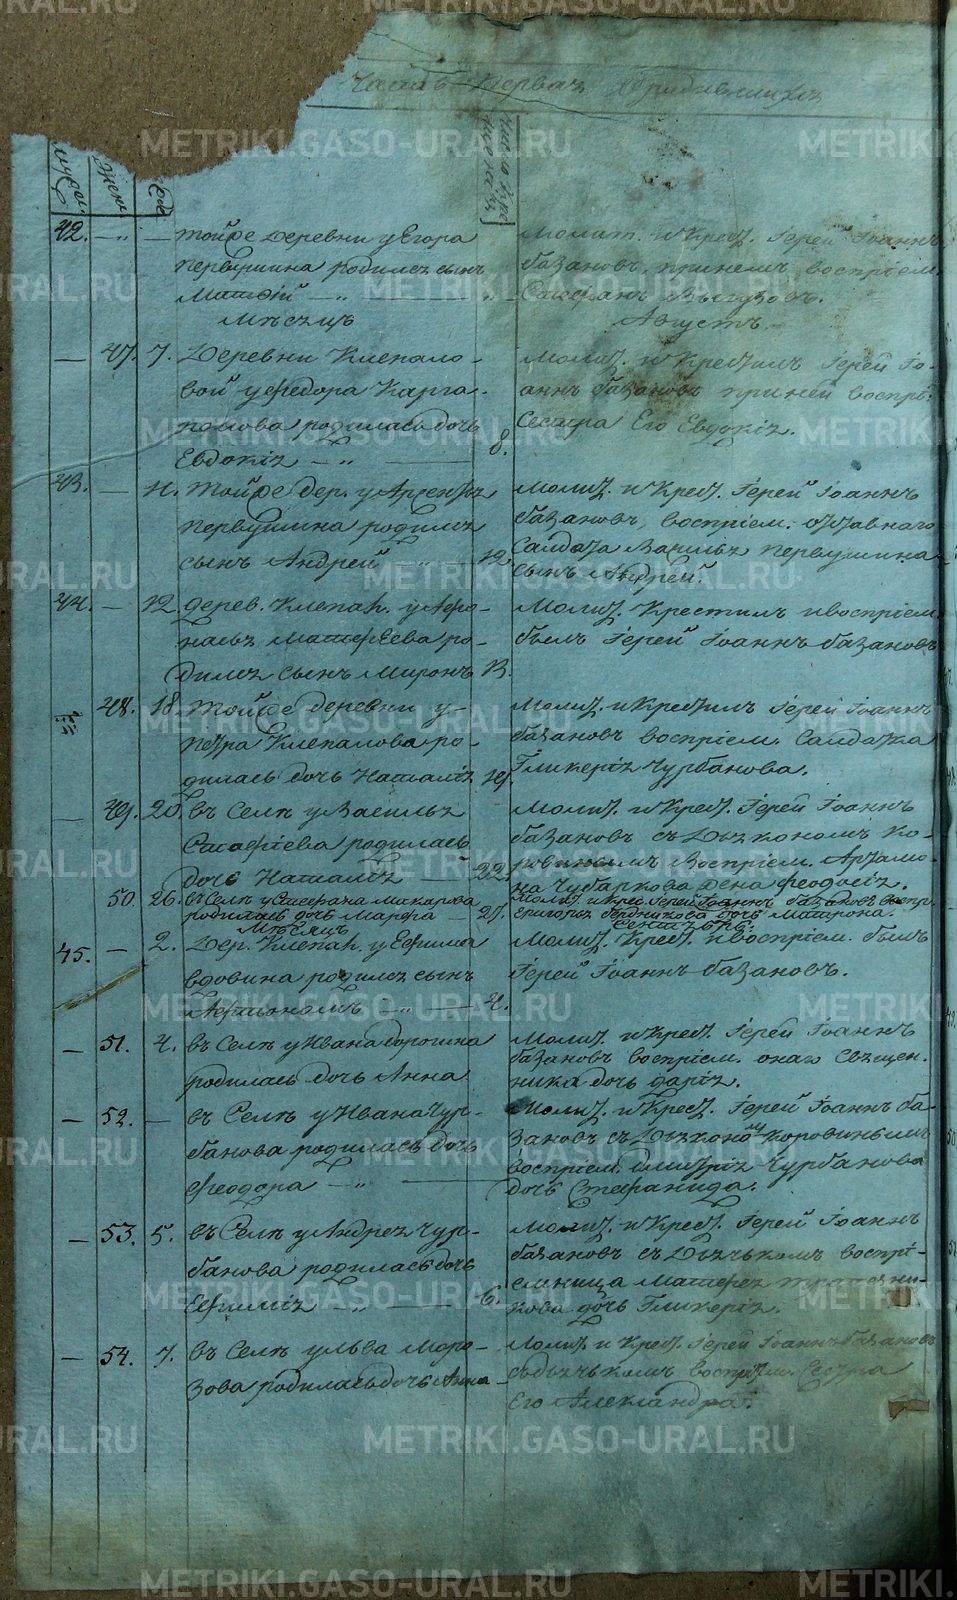 METRIKI.GASO-URAL.RU
Часть Первая О родившихся
число кре
42. — „ — тойже деревни у Егора
Первушина родился сын
Матфiй — „ —
Молит. и Крест. Iерей Iоаннъ
базановъ, приемъ восприем.
Стефанъ
Месяцъ Августъ.
— 47. 7. Деревни Клепало-
вой у Федора Карга-
полова родилась дочь
Евдокiя — „ — 8.
Молит. и Крестилъ Iерей Iо-
аннъ базановъ при ней воспрi.
Сестра Его Евдокiя.
43. — 11. тойже дер. у Арсенья
Первушина родился
сынъ Андрей „ — 12.
Молит. и Крест. Iерей Iоаннъ
базановъ, воспрiем. отставнаго
Салдата Василья Первушина
сынъ Андрей.
44. — 12. дерев. Клепал. у Афо-
насья Матфеева ро-
дился сынъ Миронъ 13.
Молит. Крестилъ и воспрiем.
былъ Iерей Iоаннъ базановъ
— 48. 18. тойже деревни у
Петра Клепалова ро-
дилась дочь Наталiя 19.
Молит. и Крестилъ Iерей Iоаннъ
базановъ воспрiем. Салдатка
Гликерiя Чурбанова.
— 49. 20. въ Селе у Василья
Стафеева родилась
дочь Наталiя — 22.
Молит. и Крест. Iерей Iоаннъ
базановъ съ Дьякономъ Ко-
ровинымъ Воспрiем. Артамо-
на Чубаркова жена Феодосiя.
50. 26. въ Селе у Стефана Макарова
родилась дочь Марфа — 27.
Молит. и Крес. Iерей Iоаннъ базановъ воспр.
Григорья дочь Матрона.
Месяцъ Сентябрь.
45. — 2. Дер. Клепал. у Ефима
Вдовина родился сынъ
Молит. Крест. и воспрiем. былъ
Iерей Iоаннъ базановъ.
— 51. 4. въ Селе у Ивана Дорогина
родилась дочь Анна
Молит. и Крест. Iерей Iоаннъ
базановъ воспрiем. онаго Священ.
ника дочь Дарiя.
— 52. — въ Селе у Ивана Чур-
банова родилась дочь
Феодора — „ —
Молит. и Крест. Iерей Iоаннъ ба-
зановъ съ Дьякономъ Коровинымъ
воспрiем. Дмитрiя Чурбанова
дочь Стефанида.
— 53. 5. въ Селе у Андрея Чур-
банова родилась дочь
Ефимiя — „ — 6.
Молит. и Крест. Iерей Iоаннъ
базановъ съ Дьячькомъ воспрi-
емница Матфея трапезни-
кова дочь Гликерiя.
— 54. 7. въ Селе у Льва Моро-
зова родилась дочь Анна
Молит. и Крест. Iерей Iоаннъ базановъ
съ дьячькомъ воспрiем. Сестра
Его Александра.